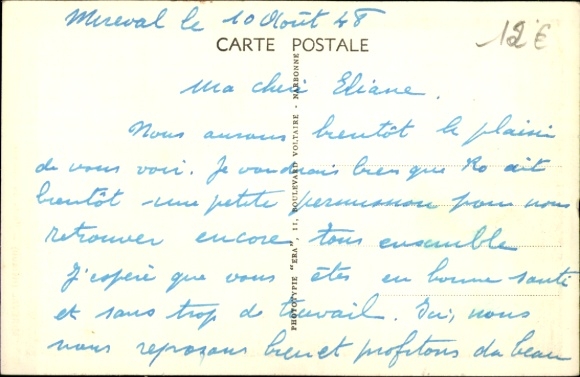 Mireval le 10 Août 48
CARTE POSTALE
12€
Ma chère Eliane.
Nous aurons bientôt le plaisir
de vous voir. Je voudrais bien que Ro ait
bientôt une petite permission pour nous
retrouver encore tous ensemble
J'espère que vous êtes en bonne santé
et sans trop de travail. Ici, nous
nous reposons bien et profitons du beau
PHOTOTYPIE "ERA", 11, BOULEVARD VOLTAIRE - NARBONNE